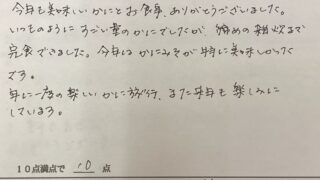 今年も美味しいかにとお食事、ありがとうございました。
いつものようにすごい量のかにでしたが、締めの雑炊まで
完食できました。今年は かにみそが特に美味しかった
です。
年に一度の楽しいかに旅行、また来年も楽しみに
しています。
10点満点で 10 点